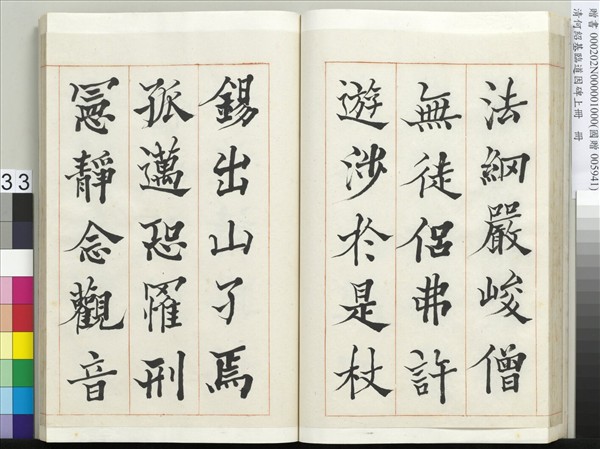 法網嚴峻僧
無徒侶弗許
遊涉於是杖
錫出山了焉
孤邁恐罹刑
憲靜念觀音
贈書 000202N000001000(國贈 005941)
清何紹基臨道因碑上冊 冊
33